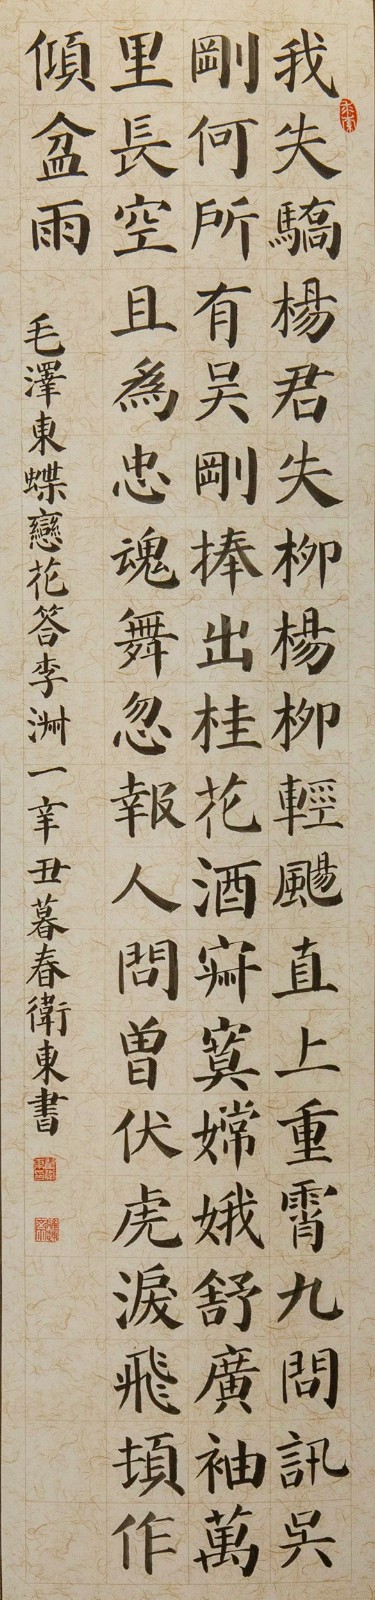 我失驕楊君失柳楊柳輕颺直上重霄九問訊吳
剛何所有吳剛捧出桂花酒寂寞嫦娥舒廣袖萬
里長空且爲忠魂舞忽報人間曾伏虎淚飛頓作
傾盆雨
毛澤東蝶戀花答李淑一辛丑暮春衛東書